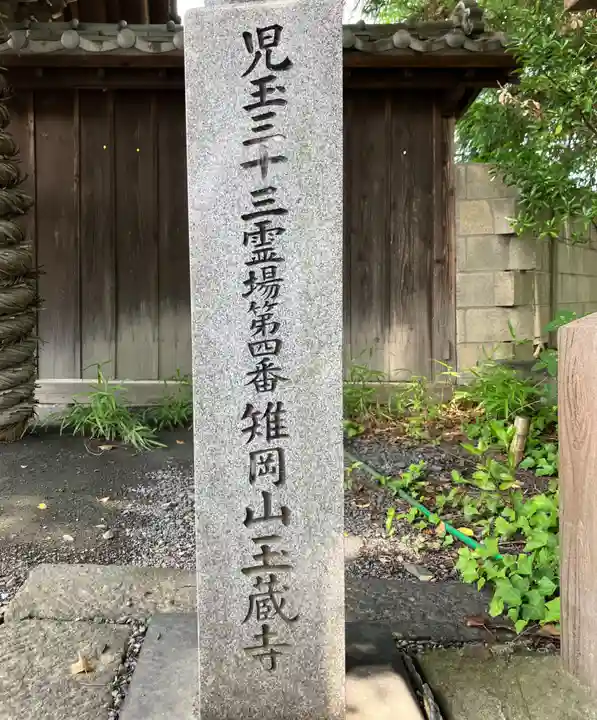 児玉三十三霊場第四番 雉岡山玉蔵寺